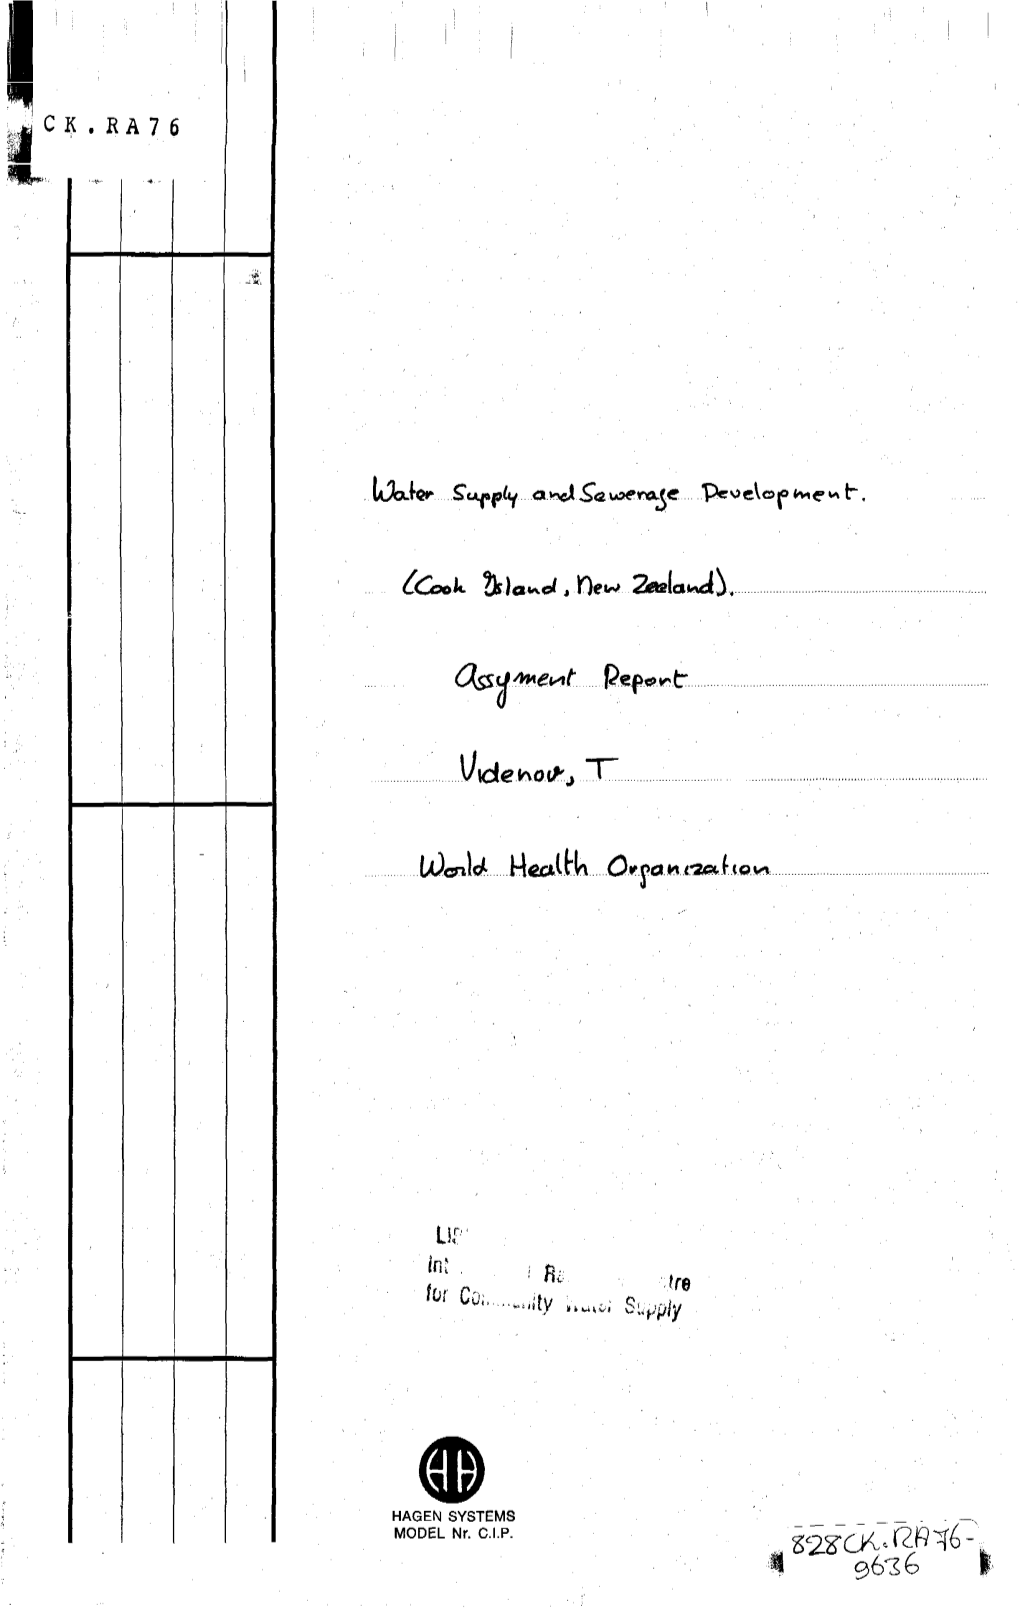 CK.RA76
Water Supply and Sewerage Development.
(Cook Island, New Zeeland).
Assyment Report
Videnov, T
World Health Organization
for Supply
HAGEN SYSTEMS
MODEL Nr. C.I.P.
828CK.RA76-
9636